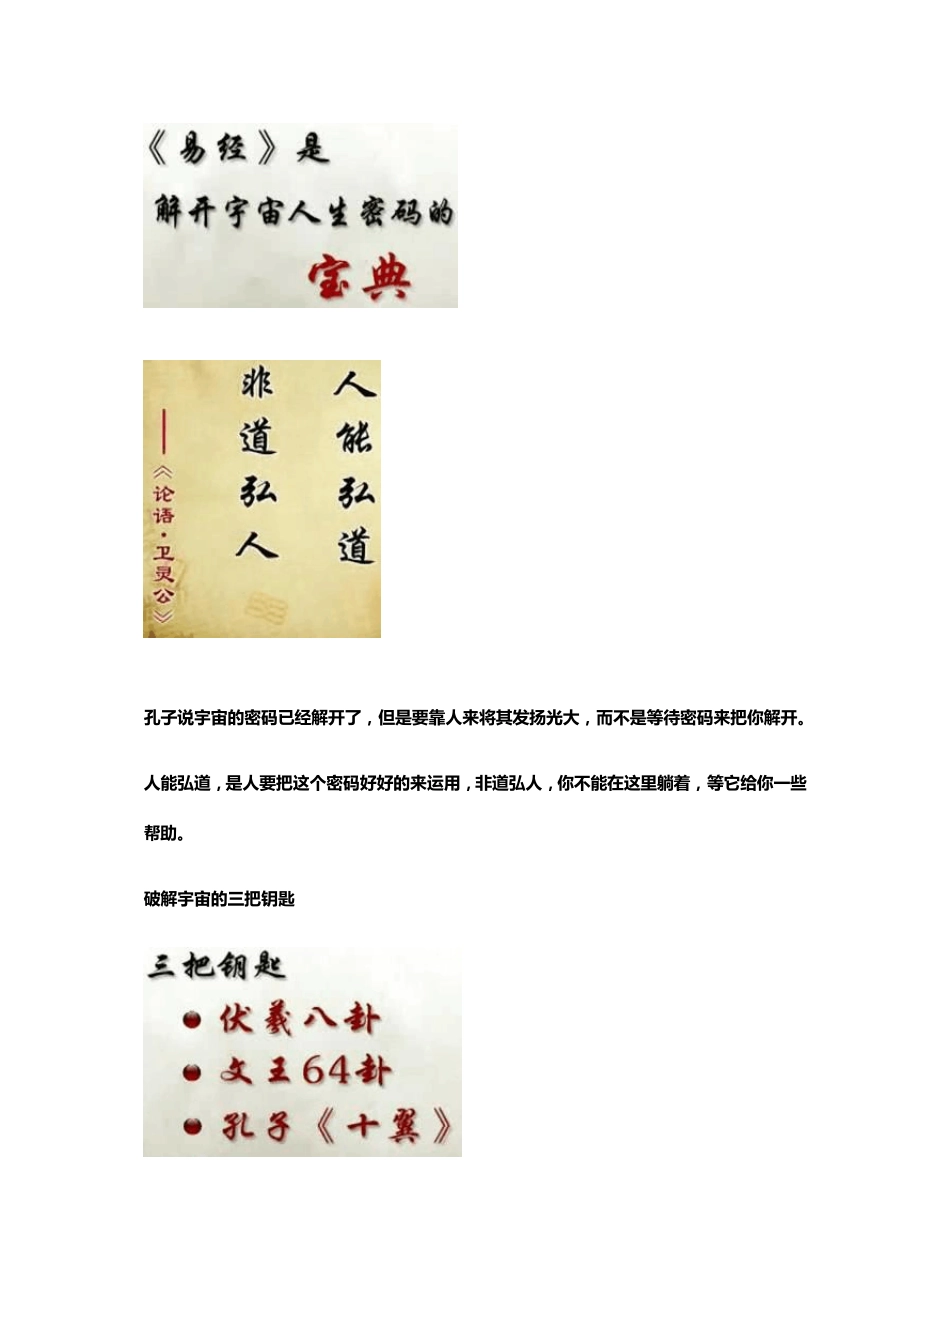 《易经》是
解开宇宙人生密码的
宝典
人能弘道
非道弘人
——《论语·卫灵公》
孔子说宇宙的密码已经解开了，但是要靠人来将其发扬光大，而不是等待密码来把你解开。
人能弘道，是人要把这个密码好好的来运用，非道弘人，你不能在这里躺着，等它给你一些
帮助。
破解宇宙的三把钥匙
三把钥匙
● 伏羲八卦
● 文王64卦
● 孔子《十翼》